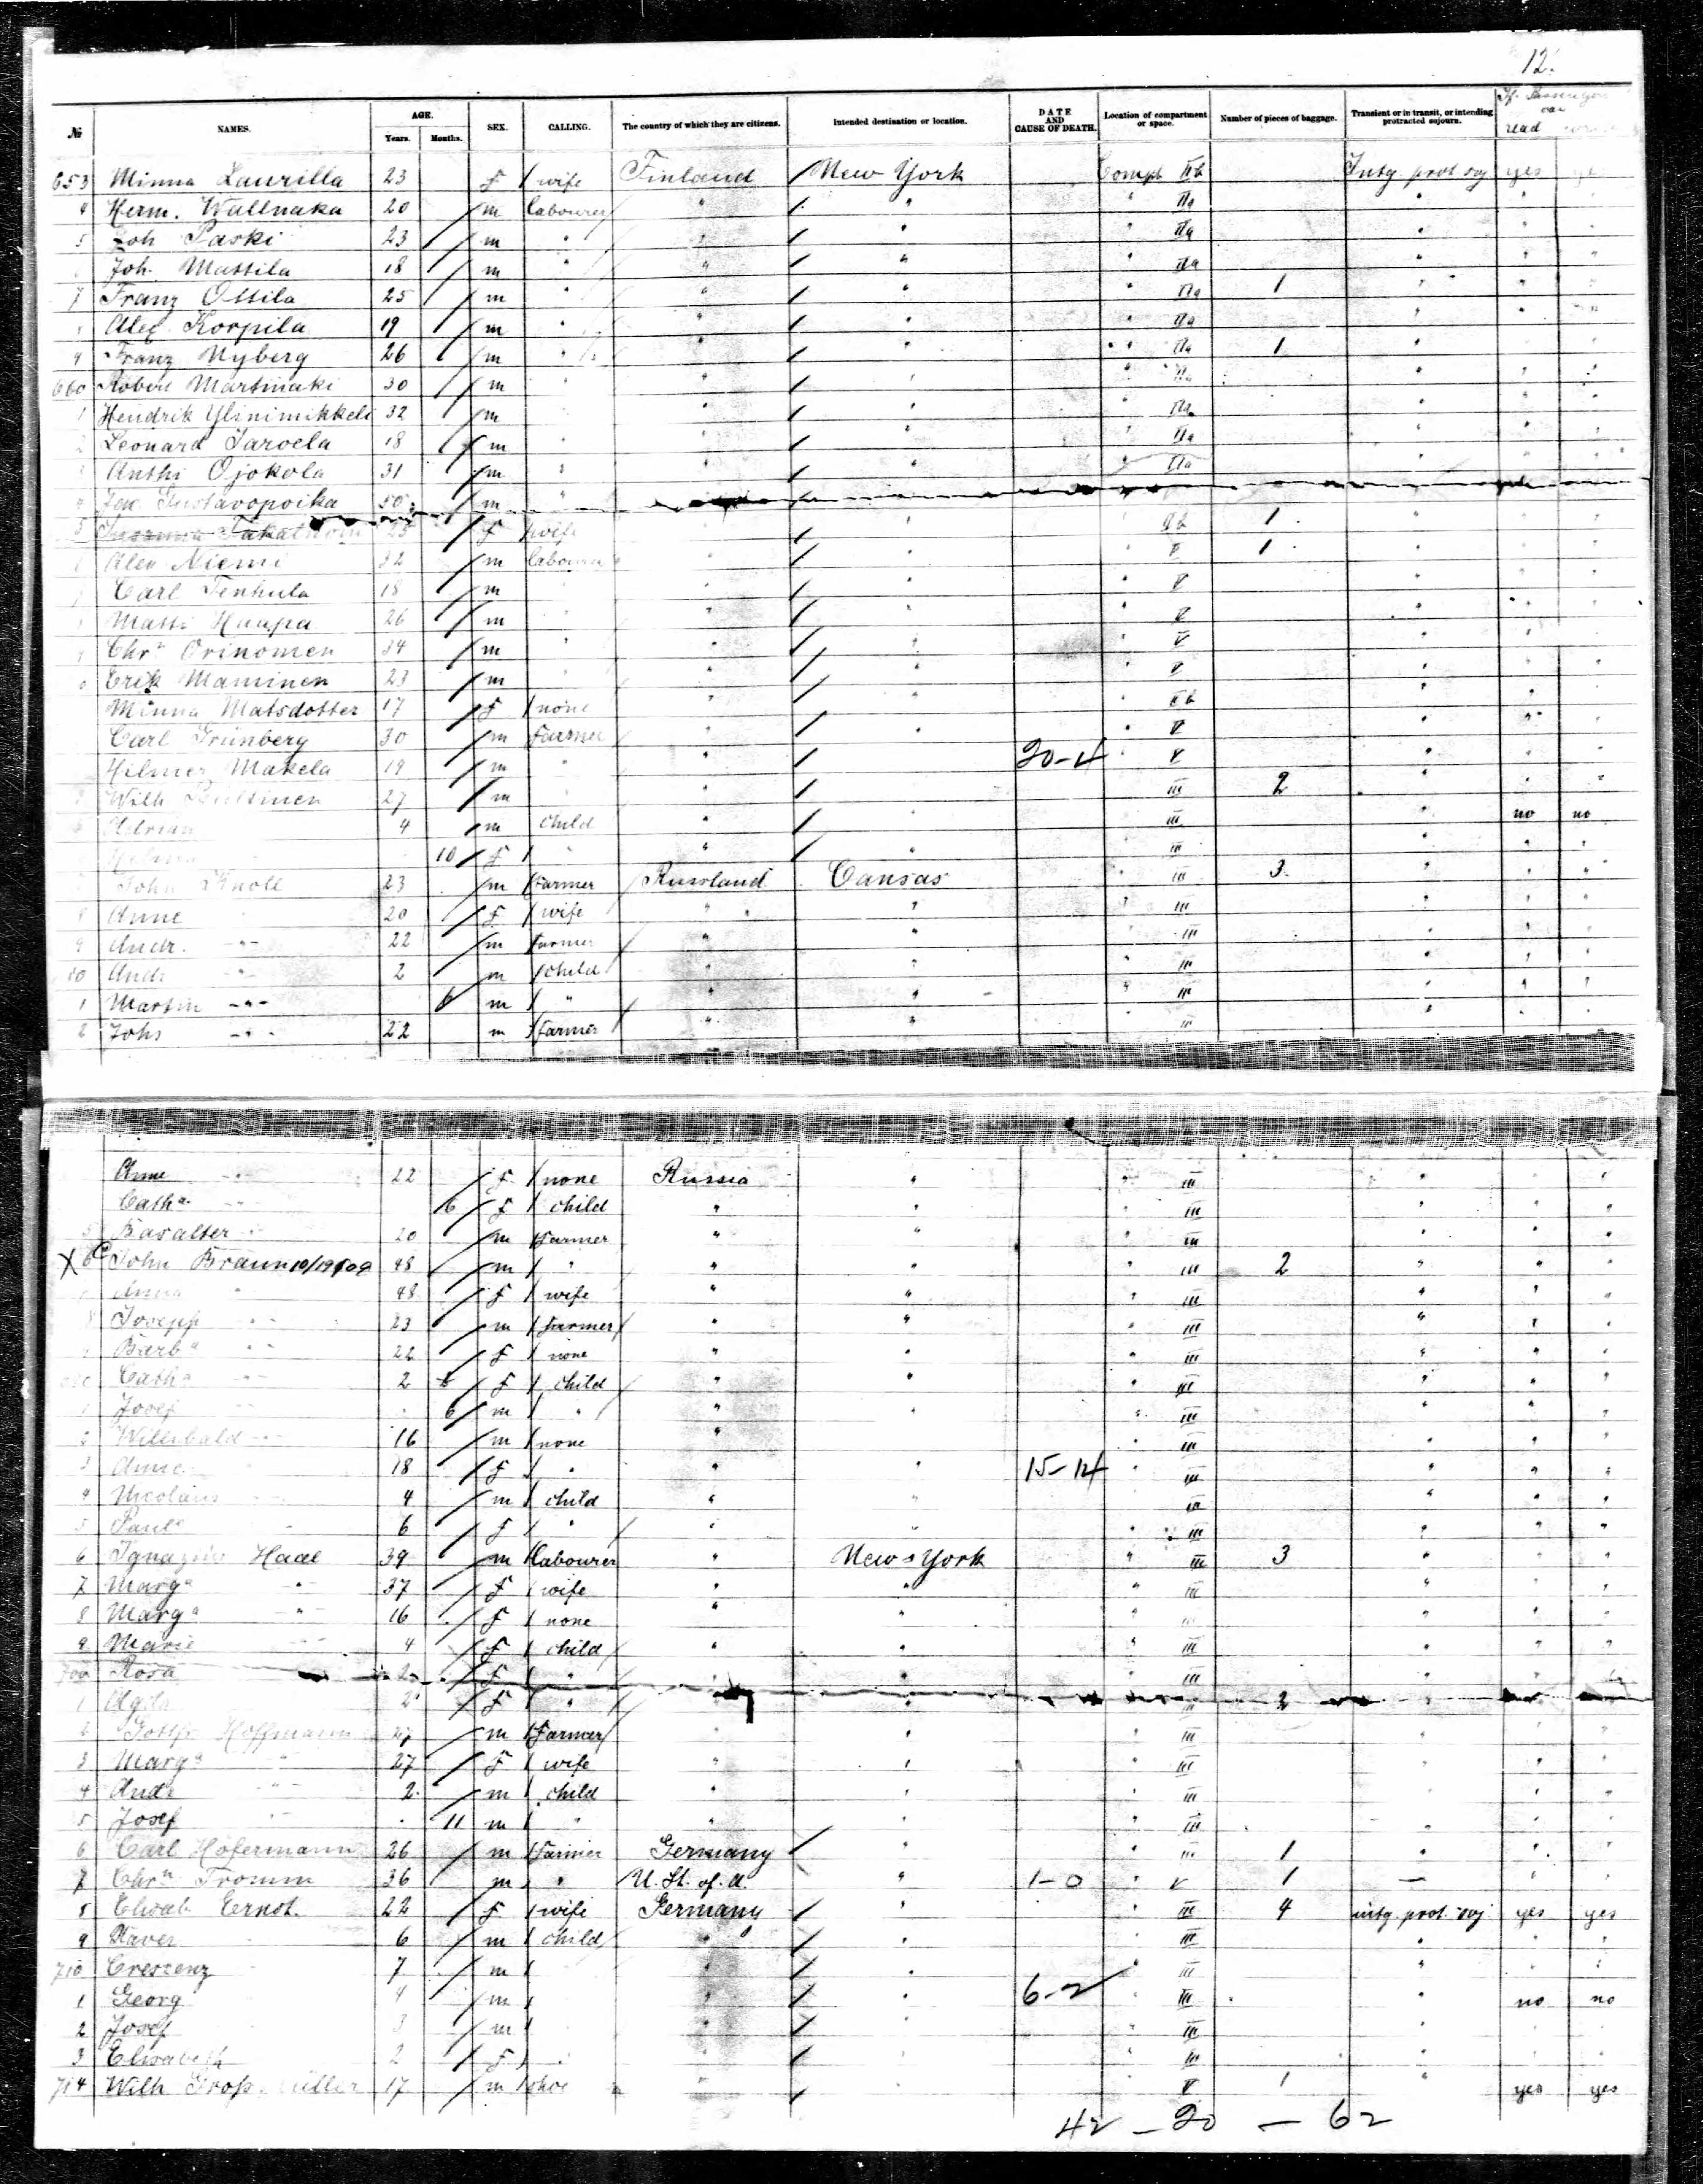 12.
No. NAMES. AGE. Years. Months. SEX. CALLING. The country of which they are citizens. Intended destination or location. DATE AND CAUSE OF DEATH. Location of compartment or space. Number of pieces of baggage. Transient or in transit, or intending protracted sojourn. If Passenger can read
653 Minna Laurilla 23 f wife Finland New York Compt IIb Intg prot soj yes
4 Herm. Wallnaka 20 m labourer " " " IIa " "
5 Joh Paski 23 m " " " " IIa " "
Joh. Mattila 18 m " " " " IIa " "
7 Franz Ollila 25 m " " " " IIa 1 " "
Alex. Korpila 19 m " " " " IIa " "
9 Franz Nyberg 26 m " " " " IIa 1 " "
660 Robert Martinaki 30 m " " " " IIa " "
1 Hendrik Ylinimikkeli 32 m " " " IIa " "
2 Leonard Jaroela 18 m " " " " IIa " "
Anthi Ojokola 31 m " " " " IIa " "
4 Gustavopoika 50 m "
5 25 f wife " " IIb 1 "
Alex Niemi 32 m labourer " " " V 1 "
Carl Tenhula 18 m " " " V "
Matti Haapa 26 m " " " V "
Chrn Orinomen 34 m " " " " V "
Erik Maminen 23 m " " " V "
Minna Matsdotter 17 f none " " " IIb "
Carl Grunberg 30 m Farmer " " " V "
Hilmer Makela 19 m " " 20-4 " V "
Wilh 27 m " " III 2 "
Adrian 4 m child " " III " no no
10 f " " " III " "
John Knoll 23 m Farmer Russland Cansas " III 3 " "
8 Anne 20 f wife " " " III " "
9 Andr. -"- 22 m Farmer " " III " "
80 Andr " 2 m child " " " III " "
1 Martin -"- 6 m " " " " III " "
2 Johs -"- 22 m Farmer " " " III " "
Anne -"- 22 f none Russia " " III " "
Catha -"- 6 f child " " " III " "
5 Basalter " 20 m Farmer " " " III " "
X 6 c John Braun 10/19/09 48 m " " " " III 2 " "
Anna " 48 f wife " " " III " "
8 Josepf " 23 m Farmer " " " III " "
Barba " 22 f none " " " III " "
Catha -"- 2 f child " " " III " "
1 Josef " 6 m " " " " III " "
2 Willibald -"- 16 m none " " III " "
3 Anne 18 f " " " 15-14 " III " "
4 Nicolaus 4 m child " " " III " "
5 Paula 6 f " " " " III " "
6 Haae 39 m labourer " New York " III 3 " "
7 Marga " 37 f wife " " " III " "
8 Marga " 16 f none " " " III " "
9 Marie " 4 f child " " " III " "
700 Rosa 2 f " " " " III " "
1 2 f " " III 2 "
2 Hoffmann 27 m Farmer " " " III " "
3 Marga " 27 f wife " " " III " "
4 Andr " 2 m child " " " III " "
5 Josef " 11 m " " " " III " "
6 Carl Hofermann 26 m Farmer Germany " " III 1 " "
7 Chrn Fromm 36 m " U. St. of A. " 1-0 " V 1 — "
8 Elisab. Ernst 22 f wife Germany " " III 4 intg. prot. soj. yes yes
9 Xaver 6 m child " " " III " "
710 Creszenz 7 m " " " III " "
1 Georg 4 m " " 6-2 " III " no no
2 Josef 3 m " " " III " "
3 Elisabeth 2 f " " " " III " "
714 Wilh 17 m " " V 1 " yes yes
42 – 20 – 62